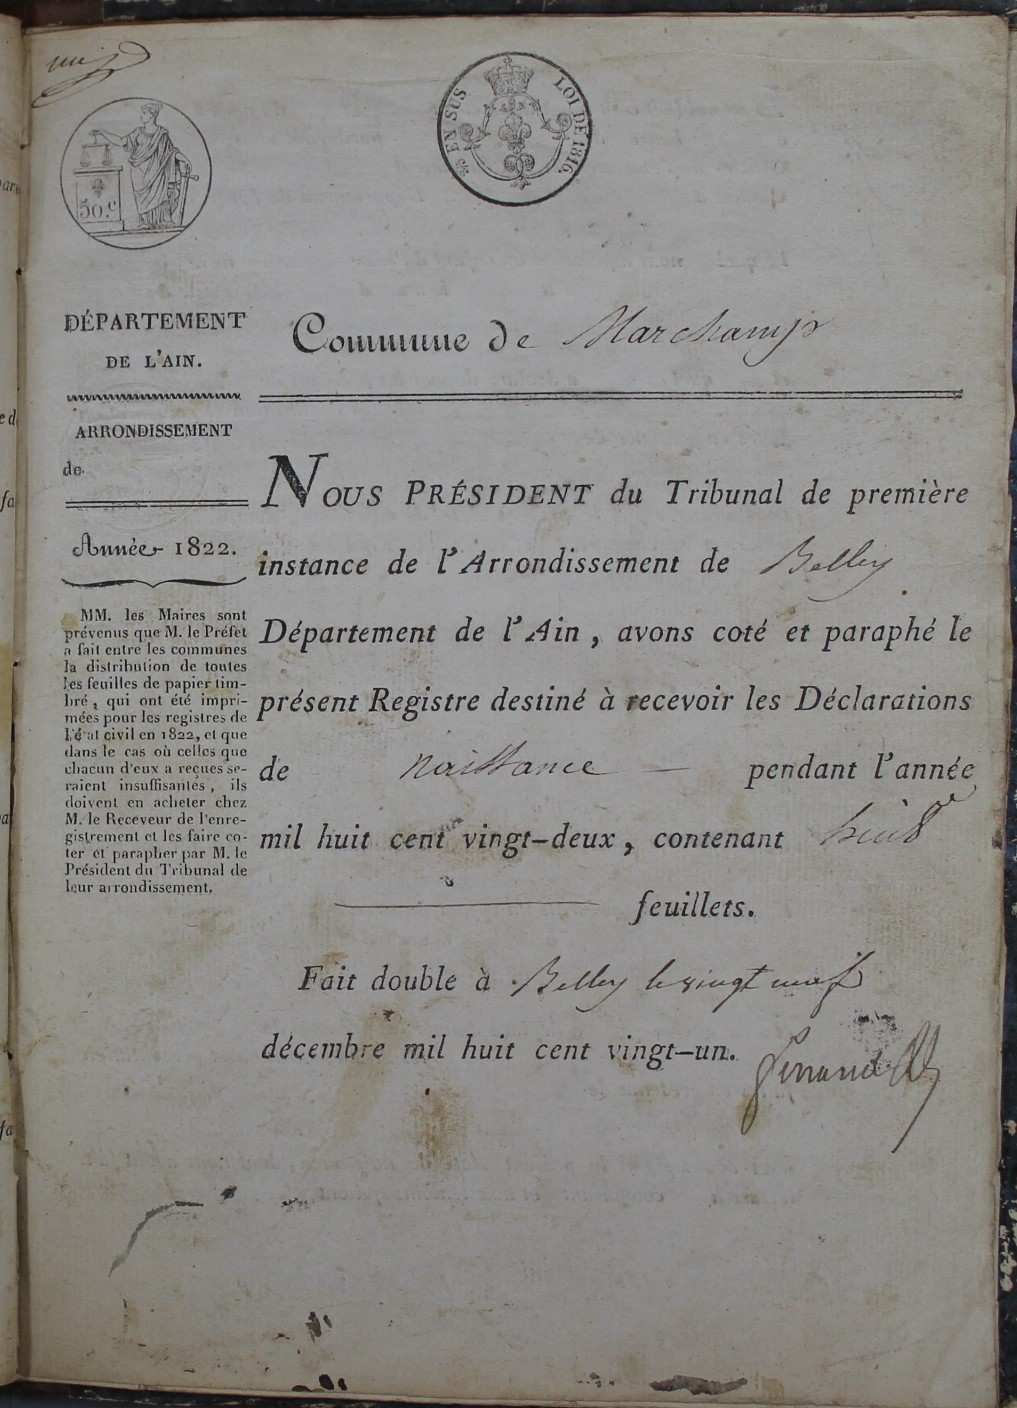 50.c
25 EN SUS LOI DE 1816.
DÉPARTEMENT
DE L'AIN.
Commune de Marchamp
ARRONDISSEMENT
de
Année 1822.
MM. les Maires sont
prévenus que M. le Préfet
a fait entre les communes
la distribution de toutes
les feuilles de papier tim-
bré, qui ont été impri-
mées pour les registres de
l'état civil en 1822, et que
dans le cas où celles que
chacun d'eux a reçues se-
raient insuffisantes, ils
doivent en acheter chez
M. le Receveur de l'enre-
gistrement et les faire co-
ter et parapher par M. le
Président du Tribunal de
leur arrondissement.
NOUS PRÉSIDENT du Tribunal de première
instance de l'Arrondissement de Belley
Département de l'Ain, avons coté et paraphé le
présent Registre destiné à recevoir les Déclarations
de naissance — pendant l'année
mil huit cent vingt-deux, contenant huit
feuillets.
Fait double à Belley le vingt neuf
décembre mil huit cent vingt-un.